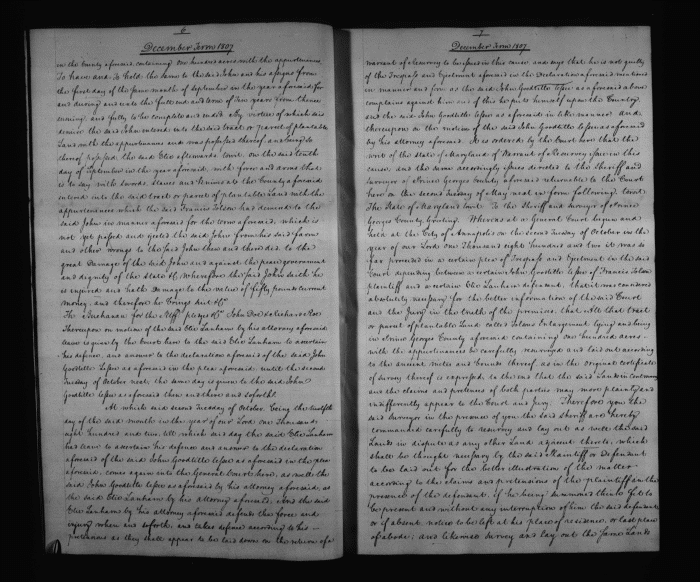 6
December Term 1807
in the County aforesaid containing one hundred acres with the appurtenances
To have and To hold the same to the said John and his assigns from
the first day of the same month of September in the year aforesaid for
and during and until the full end and term of Ten years from thence
ensuing and fully to be complete and ended By virtue of which said
demise the said John entered into the said tract or parcel of plantable
Land with the appurtenances and was possessed thereof, and being so
thereof possessed the said Elie afterwards to wit on the said tenth
day of September in the year aforesaid, with force and arms that
is to say with Swords, Staves and Knives at the County aforesaid
entered into the said tract or parcel of plantable Land with the
appurtenances which the said Francis Tolson has demised to the said
John in manner aforesaid for the term aforesaid, which is
not yet passed and ejected the said John from his said farm
and other wrongs to the said John then and there did to the
great Damage of the said John and against the peace government
and dignity of the State &c, Wherefore the said John saith he
is injured and hath Damage to the value of fifty pounds current
money, and therefore he brings suit &c
Th Buchanan for the Plff pledges &c John Doe & Richard Roe
Thereupon on motion of the said Elie Lanham by his attorney aforesaid
leave is given by the Court here to the said Elie Lanham to ascertain
his defence, and answer to the declaration aforesaid of the said John
Goodtitle Lessee as aforesaid in the plea aforesaid, until the second
Tuesday of October next, the same day is given to the said John
Goodtitle lessee as aforesaid then and there and soforth.
At which said second Tuesday of October being the twelfth
day of the said month in the year of our Lord One Thousand
eight hundred and two, till which said day the said Elie Lanham
had leave to ascertain his defence and answer to the declaration
aforesaid of the said John Goodtitle lessee as aforesaid in the plea
aforesaid, comes again into the General Court here, as well the
said John Goodtitle lessee as aforesaid by his attorney aforesaid, as
the said Elie Lanham by his attorney aforesaid, And the said
Elie Lanham by his attorney aforesaid defends the force and
injury when and soforth, and takes defence according to his
pretensions as they shall appear to be laid down on the return of a
7
December Term 1807
warrant of resurvey to be issued in this cause, and says that he is not guilty
of the Trespass and Ejectment aforesaid in the Declaration aforesaid mentioned
in manner and form as the said John Goodtitle lessee as aforesaid above
complains against him and of this he puts himself upon the Country
and the said John Goodtitle lessee as aforesaid in like manner and
thereupon on the motion of the said John Goodtitle lessee as aforesaid
by his attorney aforesaid. It is ordered by the Court here that the
writ of the State of Maryland of Warrant of Resurvey issue in this
cause, and the same accordingly issues directed to the Sheriff and
Surveyor of Prince Georges County aforesaid returnable to the Court
here on the second Tuesday of May next in form following to wit
The State of Maryland Sct. To the Sheriff and Surveyor of Prince
Georges County Greeting. Whereas at a General Court begun and
held at the City of Annapolis on the second Tuesday of October in the
year of our Lord One Thousand eight hundred and two it was so
far proceeded in a certain plea of Trespass and Ejectment in the said
Court depending between a certain John Goodtitle lessee of Francis Tolson
plaintiff and a certain Elie Lanham defendant, that it was considered
absolutely necessary for the better information of the said Court
and the Jury in the truth of the premises, that all that tract
or parcel of plantable Land called Isleing Enlargement lying and being
in Prince Georges County aforesaid containing one hundred acres
with the appurtenances be carefully resurveyed and laid out according
to the ancient metes and bounds thereof, as in the original certificate
of survey thereof is expressed, to the end that the said Lands in Controversy
and the claims and pretences of both parties may more plainly and
indifferently appear to the Court and Jury. Therefore you the
said Surveyor in the presence of you the said Sheriff are hereby
commanded carefully to resurvey and lay out as well the said
Lands in dispute as any other Land adjacent thereto, which
shall be thought necessary by the said Plaintiff or Defendant
to be laid out for the better illustration of the matter
according to the claims and pretensions of the plaintiff and the
presence of the defendant, if he being summoned thinks fit to
be present and without any interruption of him the said defendant
or if absent, notice to be left at his place of residence, or last place
of abode; and likewise survey and lay out the same Lands